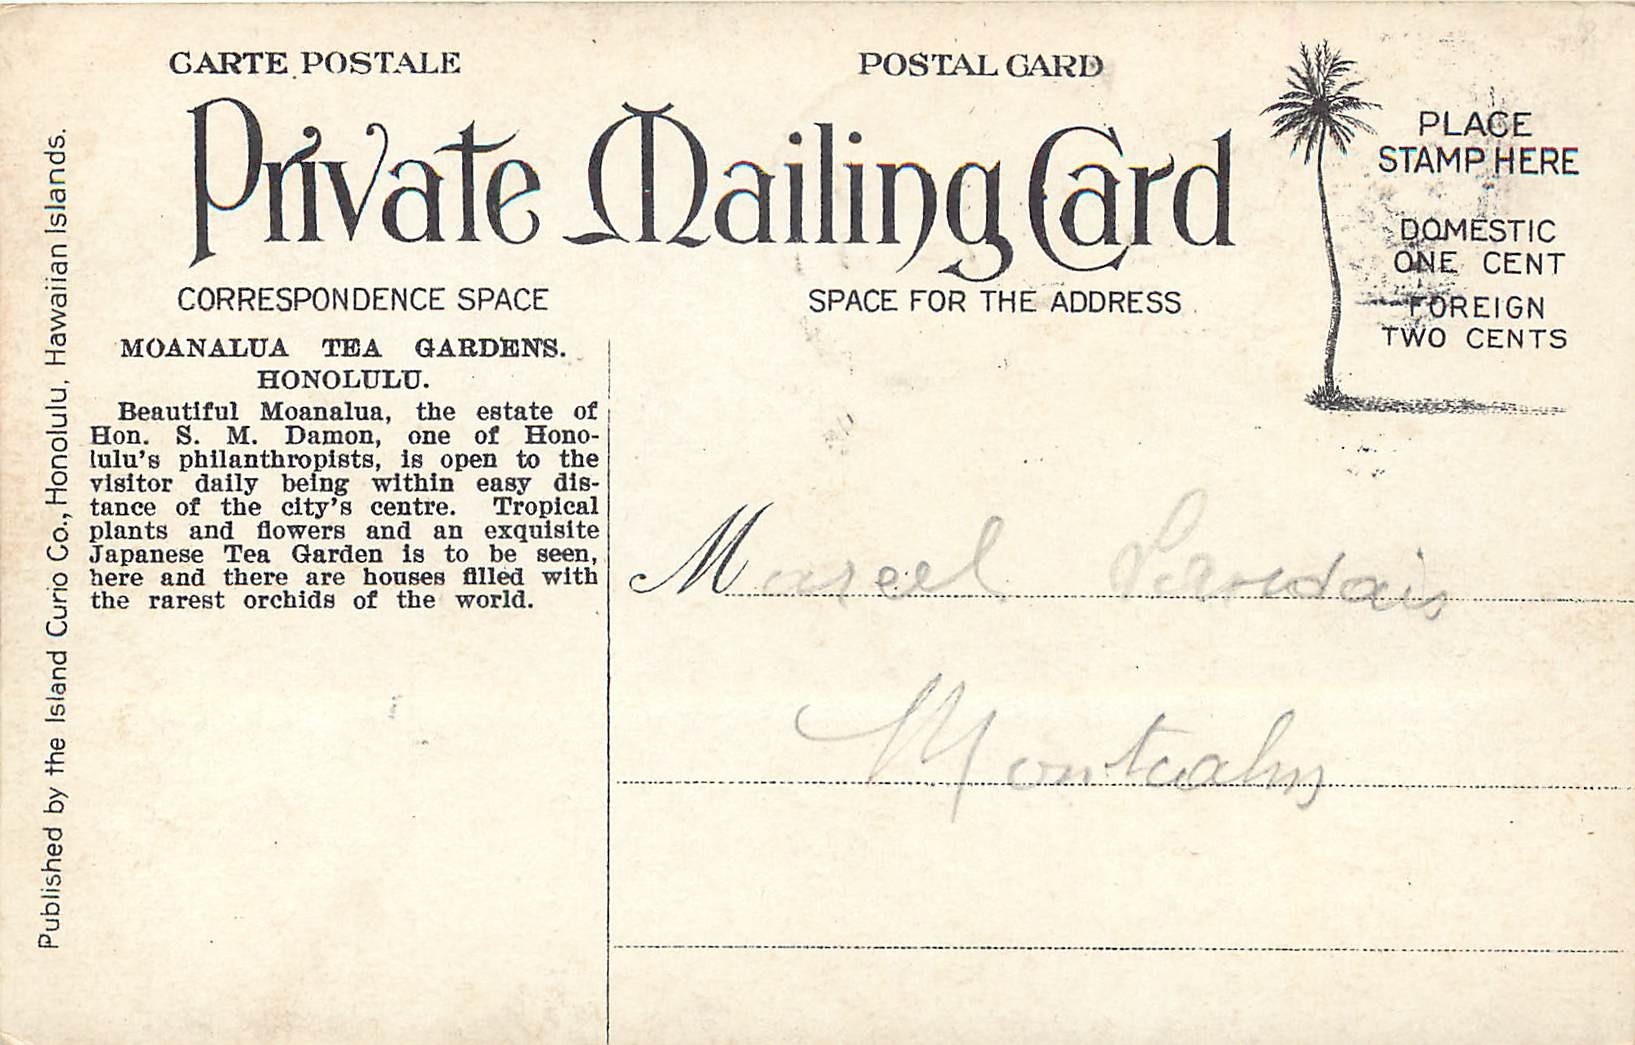 CARTE POSTALE
POSTAL CARD
Private Mailing Card
PLACE
STAMP HERE
DOMESTIC
ONE CENT
FOREIGN
TWO CENTS
CORRESPONDENCE SPACE
SPACE FOR THE ADDRESS
MOANALUA TEA GARDENS.
HONOLULU.
Beautiful Moanalua, the estate of
Hon. S. M. Damon, one of Hono-
lulu's philanthropists, is open to the
visitor daily being within easy dis-
tance of the city's centre. Tropical
plants and flowers and an exquisite
Japanese Tea Garden is to be seen,
here and there are houses filled with
the rarest orchids of the world.
Marcel
Published by the Island Curio Co., Honolulu, Hawaiian Islands.